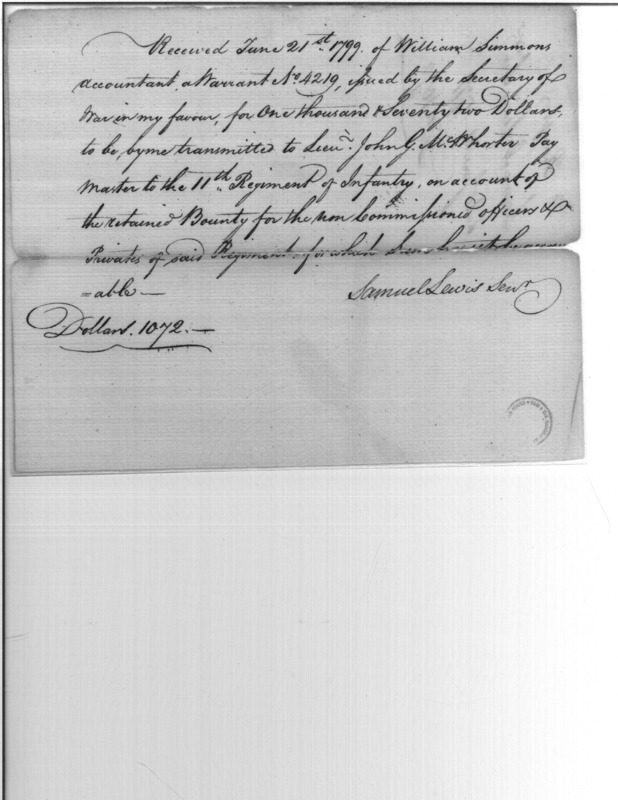 Received June 21st. 1799. of William Simmons
accountant, a Warrant No. 4219, issued by the Secretary of
War in my favour, for One thousand & Seventy two Dollars,
to be, by me transmitted to Lieut. John G. McWhorter Pay
Master to the 11th. Regiment of Infantry, on account of
the retained Bounty for the non Commissioned officers &
Privates of said Regiment, & for which I am
=able—
Samuel Lewis Senr
Dollars. 1072.—